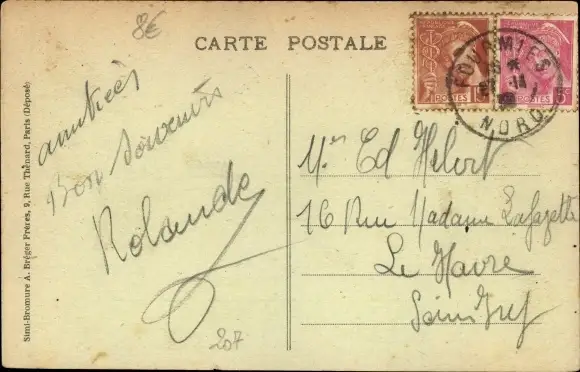 8€
CARTE POSTALE
POSTES
POSTES 5c
FOURMIES
NORD
amitiés
Bon souvenir
Rolande
207
Mr Ed Hebert
16 Rue Madame Lafayette
Le Havre
Simi-Bromure A. Bréger Frères, 9, Rue Thénard, Paris (Déposé)